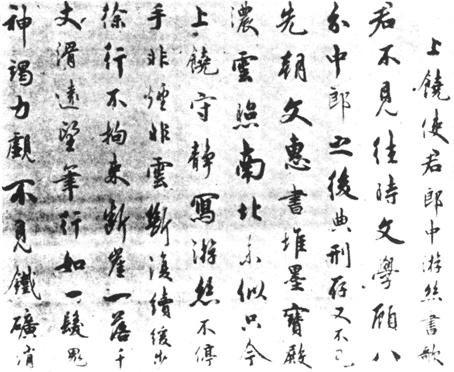 上饒使君郎中游絲書歌
君不見往時文學顧八
分中郎之後典刑存又不見
先朝文惠書堆墨寶殿
濃雲照南北未似只今
上饒守靜寫游絲不停
手非煙非雲斷復續緩步
徐行不拘束斷崖一落千
丈滑遠望筆行如一髮
神竭力覷不見鐵礦消